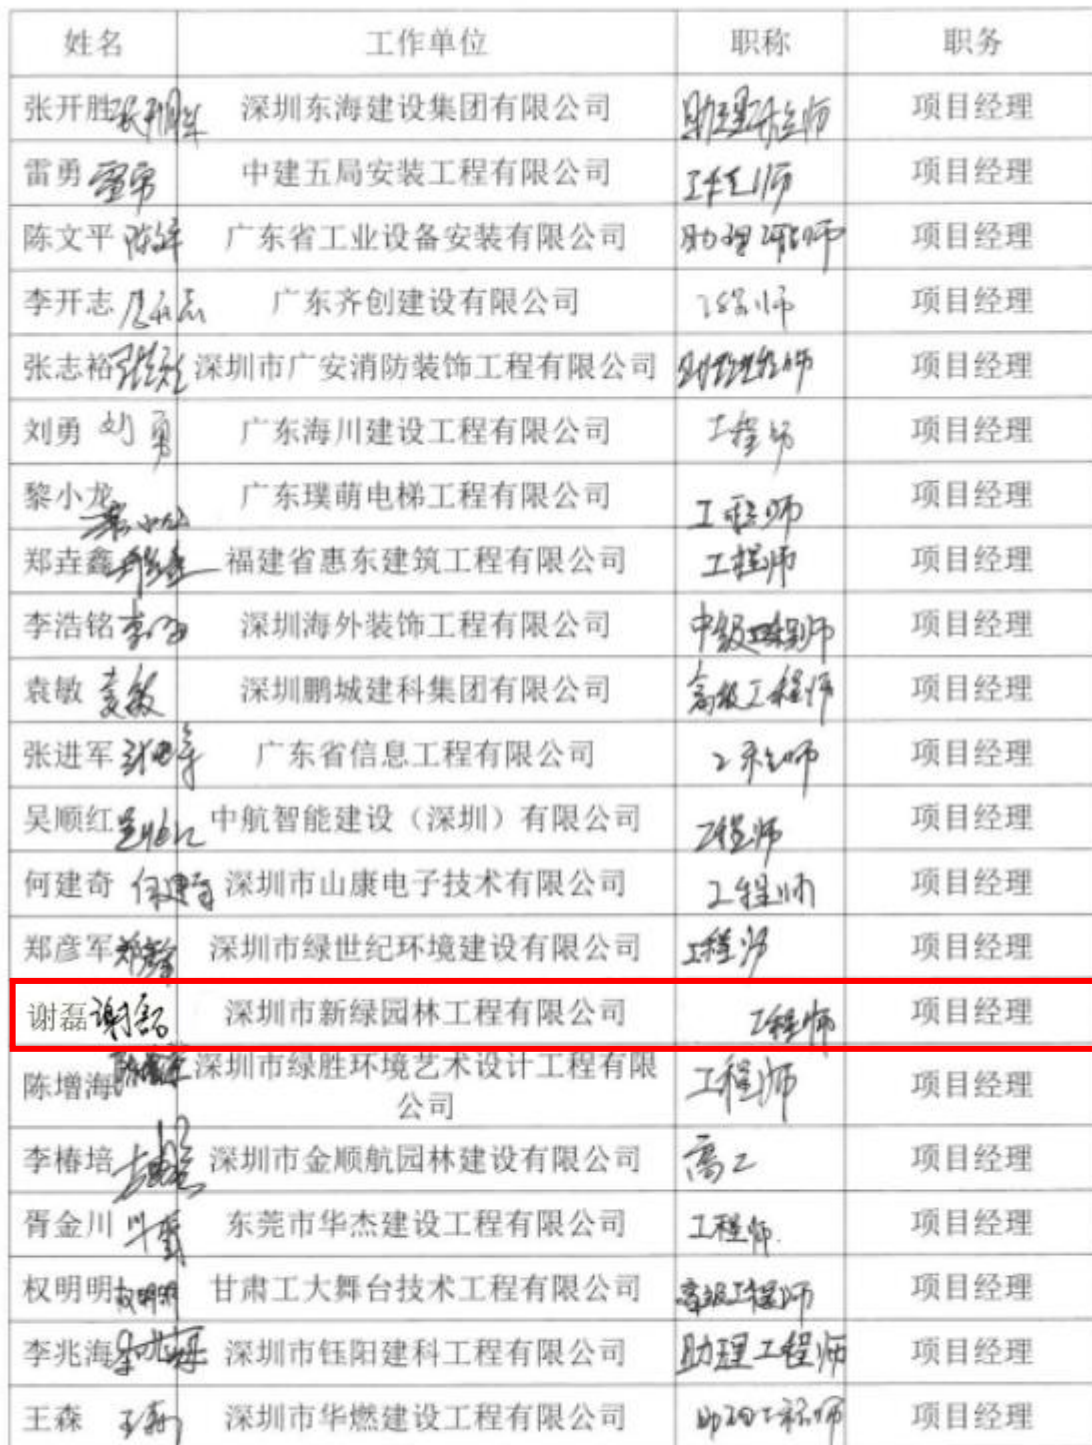 姓名 工作单位 职称 职务
张开胜 张开胜 深圳东海建设集团有限公司 助理工程师 项目经理
雷勇 雷勇 中建五局安装工程有限公司 工程师 项目经理
陈文平 广东省工业设备安装有限公司 助理工程师 项目经理
李开志 李开志 广东齐创建设有限公司 工程师 项目经理
张志裕 深圳市广安消防装饰工程有限公司 助理工程师 项目经理
刘勇 刘勇 广东海川建设工程有限公司 工程师 项目经理
黎小龙 黎小龙 广东璞萌电梯工程有限公司 工程师 项目经理
郑垚鑫 郑垚鑫 福建省惠东建筑工程有限公司 工程师 项目经理
李浩铭 深圳海外装饰工程有限公司 中级工程师 项目经理
袁敏 袁敏 深圳鹏城建科集团有限公司 高级工程师 项目经理
张进军 张进军 广东省信息工程有限公司 工程师 项目经理
吴顺红 吴顺红 中航智能建设（深圳）有限公司 工程师 项目经理
何建奇 何建奇 深圳市山康电子技术有限公司 工程师 项目经理
郑彦军 深圳市绿世纪环境建设有限公司 工程师 项目经理
谢磊 谢磊 深圳市新绿园林工程有限公司 工程师 项目经理
陈增海 深圳市绿胜环境艺术设计工程有限
公司 工程师 项目经理
李椿培 深圳市金顺航园林建设有限公司 高工 项目经理
胥金川 东莞市华杰建设工程有限公司 工程师 项目经理
权明明 权明明 甘肃工大舞台技术工程有限公司 高级工程师 项目经理
李兆海 李兆海 深圳市钰阳建科工程有限公司 助理工程师 项目经理
王森 王森 深圳市华燃建设工程有限公司 助理工程师 项目经理